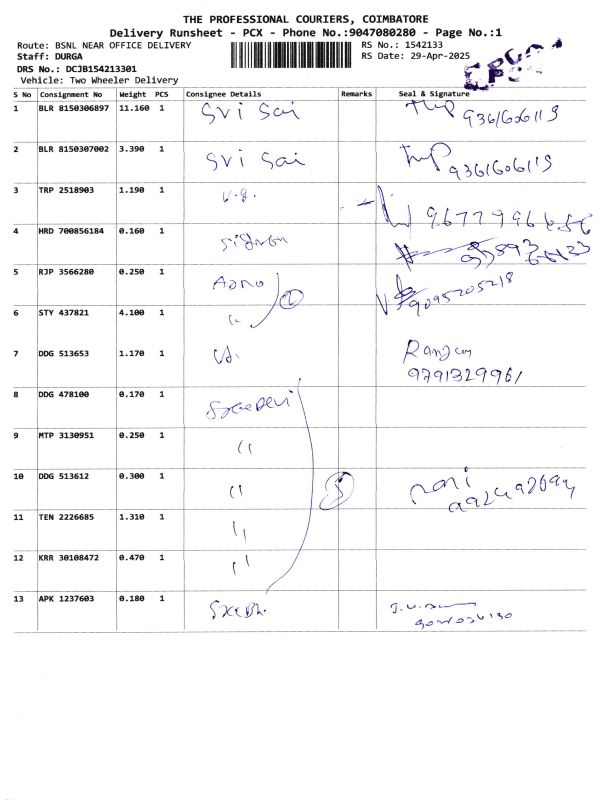 THE PROFESSIONAL COURIERS, COIMBATORE
Delivery Runsheet - PCX - Phone No.:9047080280 - Page No.:1
Route: BSNL NEAR OFFICE DELIVERY RS No.: 1542133
Staff: DURGA RS Date: 29-Apr-2025
DRS No.: DCJB154213301
Vehicle: Two Wheeler Delivery
S No Consignment No Weight PCS Consignee Details Remarks Seal & Signature
1 BLR 8150306897 11.160 1 Sri Sai 9361606119
2 BLR 8150307002 3.390 1 Sri Sai 9361606119
3 TRP 2518903 1.190 1
4 HRD 700856184 0.160 1
5 RJP 3566280 0.250 1 2 9095205218
6 STY 437821 4.100 1 "
7 DDG 513653 1.170 1 Ranjan
9791329961
8 DDG 478100 0.170 1 Sreedevi
9 MTP 3130951 0.250 1 "
10 DDG 513612 0.300 1 " 5 mani
11 TEN 2226685 1.310 1 "
12 KRR 30108472 0.470 1 "
13 APK 1237603 0.180 1